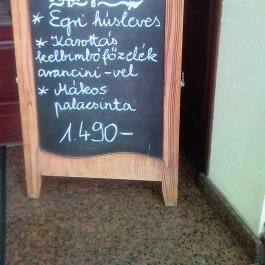 * Egri húsleves
* Karottás
kelbimbófőzelék
arancini-vel
* Mákos
palacsinta
1.490-